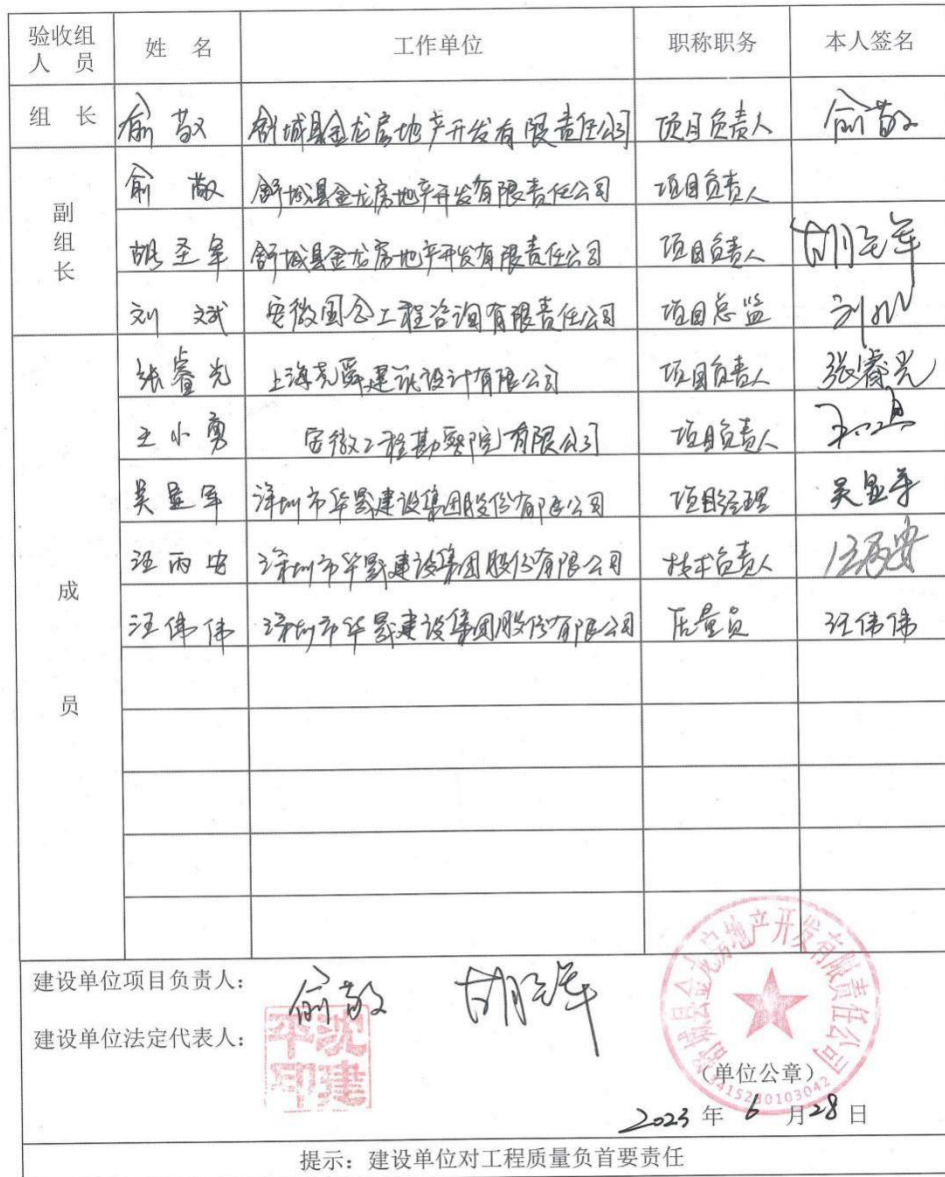 验收组人员 姓 名 工作单位 职称职务 本人签名
组 长 俞敬 舒城县金龙房地产开发有限责任公司 项目负责人 俞敬
副组长 俞敬 舒城县金龙房地产开发有限责任公司 项目负责人
胡圣军 舒城县金龙房地产开发有限责任公司 项目负责人 胡圣军
刘斌 安徽国合工程咨询有限责任公司 项目总监 刘斌
成员 张睿光 上海尧舜建筑设计有限公司 项目负责人 张睿光
王小勇 安徽工程勘察院有限公司 项目负责人
吴显军 深圳市华晟建设集团股份有限公司 项目经理 吴显军
汪丙安 深圳市华晟建设集团股份有限公司 技术负责人 汪丙安
汪伟伟 深圳市华晟建设集团股份有限公司 质量员 汪伟伟
建设单位项目负责人: 俞敬 胡圣军
建设单位法定代表人: 沈建平印
舒城县金龙房地产开发有限责任公司
(单位公章)
3415230103042
2023 年 6 月 28 日
提示:建设单位对工程质量负首要责任